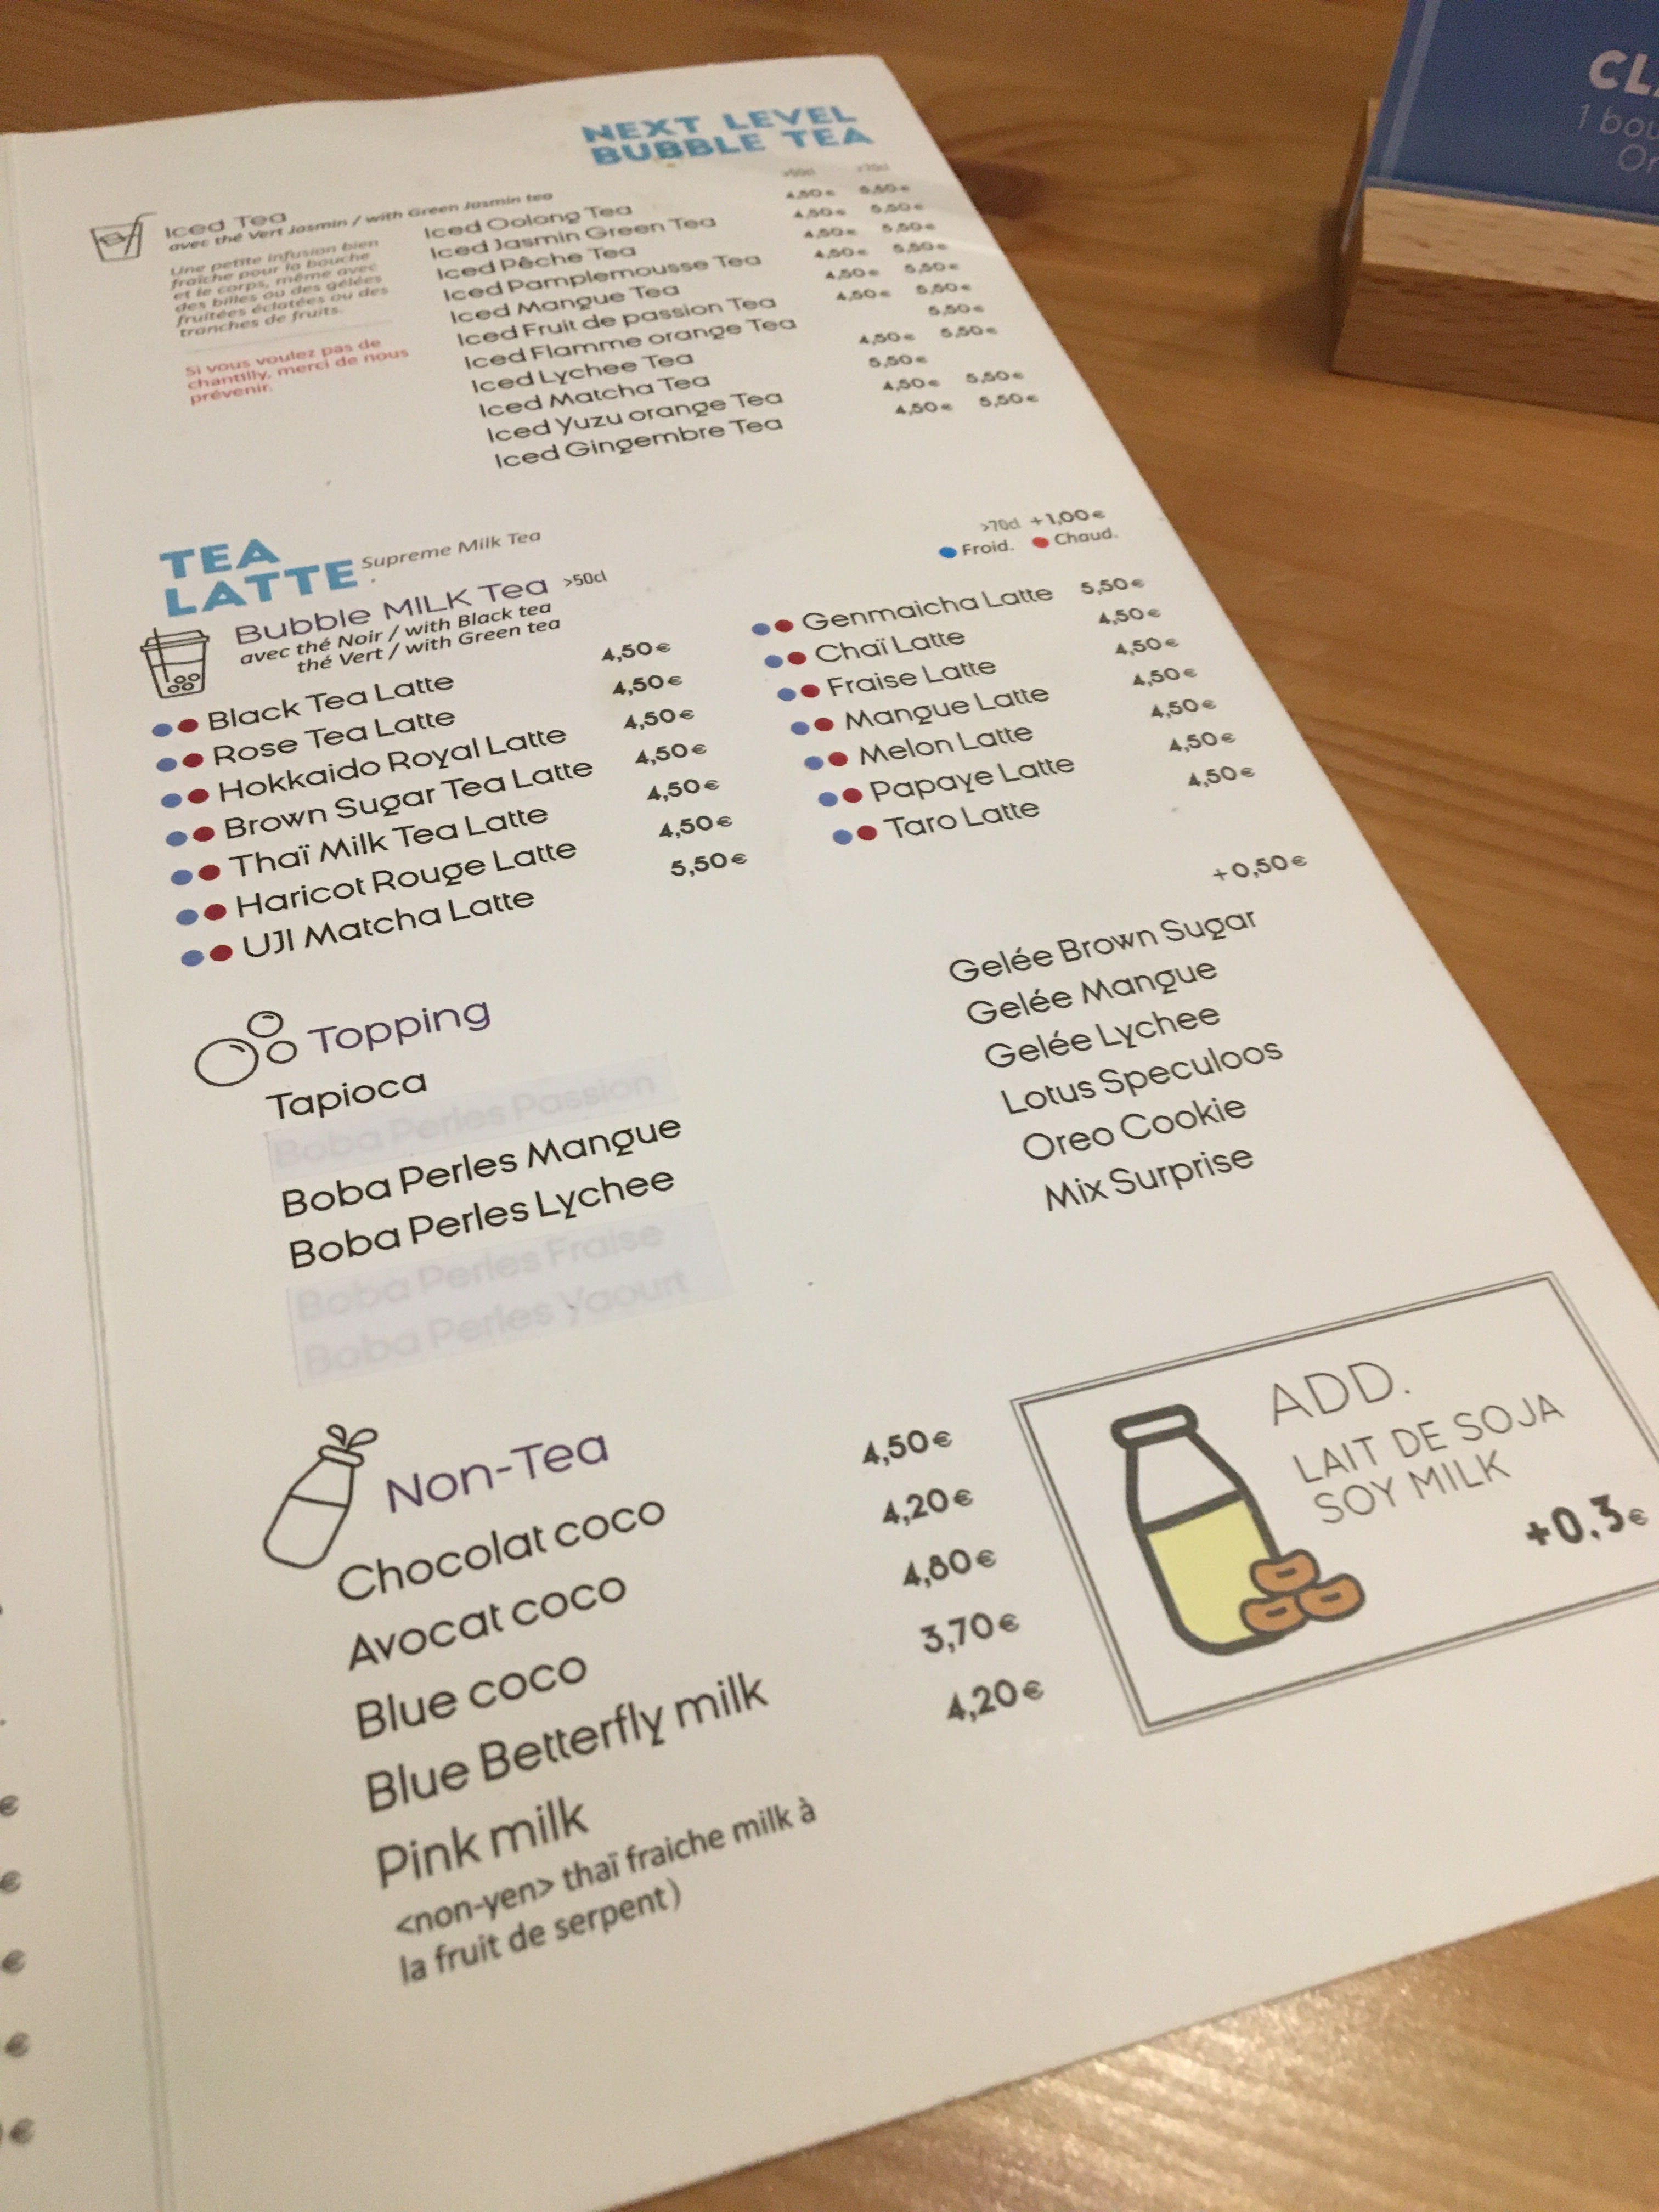 NEXT LEVEL
BUBBLE TEA
>50cl >70cl
Iced Tea
avec thé Vert Jasmin / with Green Jasmin tea
Une petite infusion bien
fraîche pour la bouche
et le corps, même avec
des billes ou des gélées
fruitées éclatées ou des
tranches de fruits.
Si vous voulez pas de
chantilly, merci de nous
prévenir.
Iced Oolong Tea 4,50€ 5,50€
Iced Jasmin Green Tea 4,50€ 5,50€
Iced Pêche Tea 4,50€ 5,50€
Iced Pamplemousse Tea 4,50€ 5,50€
Iced Mangue Tea 4,50€ 5,50€
Iced Fruit de passion Tea 4,50€ 5,50€
Iced Flamme orange Tea 5,50€
Iced Lychee Tea 4,50€ 5,50€
Iced Matcha Tea 5,50€
Iced Yuzu orange Tea 4,50€ 5,50€
Iced Gingembre Tea 4,50€ 5,50€
TEA
LATTE Supreme Milk Tea
Bubble MILK Tea >50cl
avec thé Noir / with Black tea
thé Vert / with Green tea
>70cl +1,00€
Froid. Chaud.
Black Tea Latte 4,50€
Rose Tea Latte 4,50€
Hokkaido Royal Latte 4,50€
Brown Sugar Tea Latte 4,50€
Thaï Milk Tea Latte 4,50€
Haricot Rouge Latte 4,50€
UJI Matcha Latte 5,50€
Genmaicha Latte 5,50€
Chaï Latte 4,50€
Fraise Latte 4,50€
Mangue Latte 4,50€
Melon Latte 4,50€
Papaye Latte 4,50€
Taro Latte 4,50€
Topping
+0,50€
Tapioca
Boba Perles Passion
Boba Perles Mangue
Boba Perles Lychee
Boba Perles Fraise
Boba Perles Yaourt
Gelée Brown Sugar
Gelée Mangue
Gelée Lychee
Lotus Speculoos
Oreo Cookie
Mix Surprise
Non-Tea
Chocolat coco 4,50€
Avocat coco 4,20€
Blue coco 4,80€
Blue Betterfly milk 3,70€
Pink milk 4,20€
<non-yen> thaï fraiche milk à
la fruit de serpent)
ADD.
LAIT DE SOJA
SOY MILK
+0.3€
€
€
€
€
€